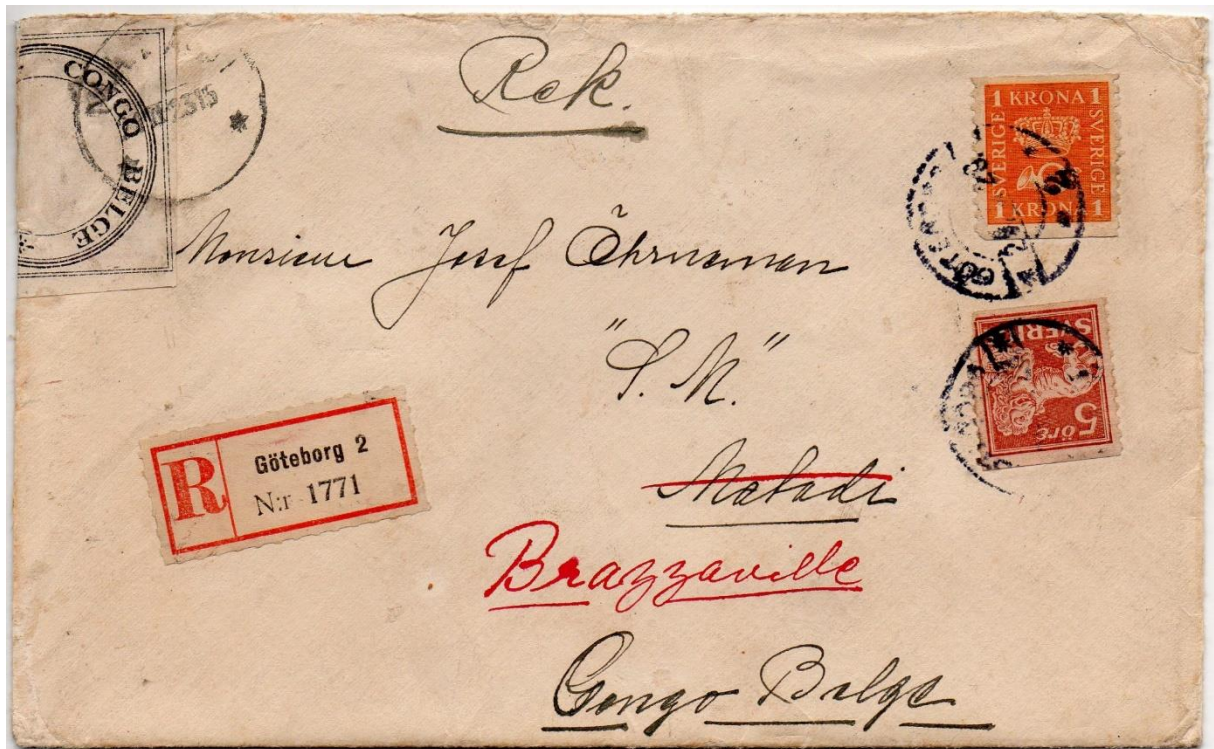 CONGO BELGE
Rek.
1 KRONA 1
SVERIGE
SVERIGE
1 KRON 1
Monsieur Josef Öhrneman
"S. M."
5 ÖRE
SVERI
R
Göteborg 2
N:r 1771
Matadi
Brazzaville
Congo Belge